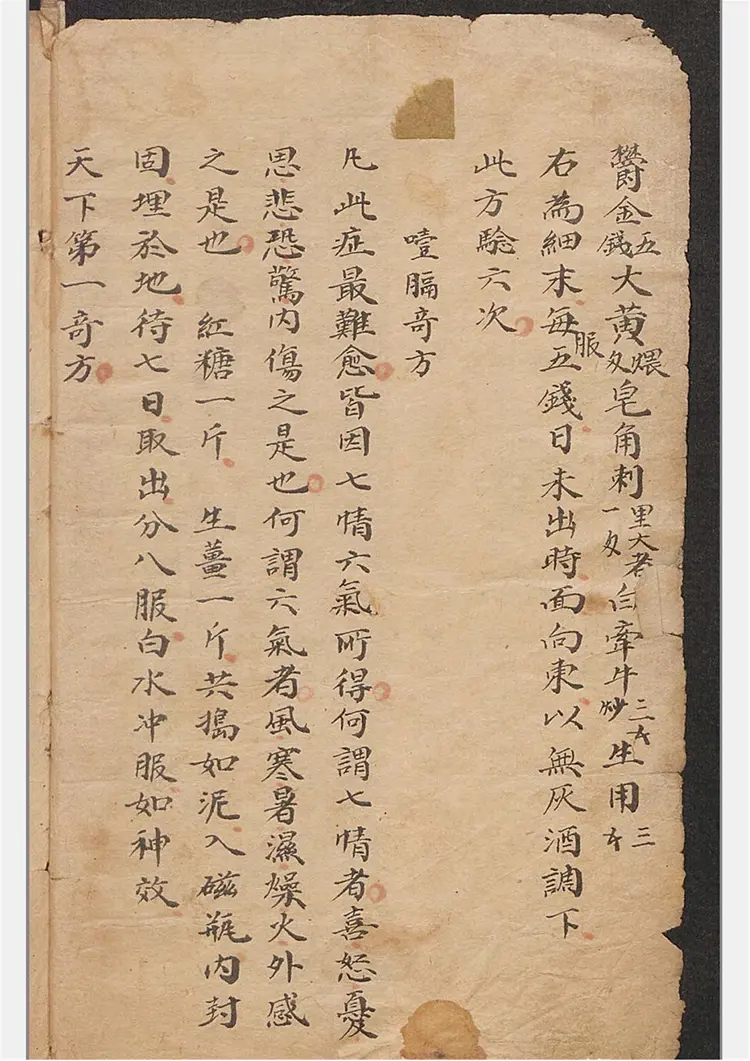 鬱金五錢大黃煨皂角刺里大者白牽牛炒三生用三
右為細末每服五錢日未出時面向東以無灰酒調下
此方驗六次
噎膈奇方
凡此症最難愈皆因七情六氣所得何謂七情者喜怒憂
思悲恐驚內傷之是也何謂六氣者風寒暑濕燥火外感
之是也 紅糖一斤 生薑一斤共搗如泥入磁瓶內封
固埋於地待七日取出分八服白水冲服如神效
天下第一奇方